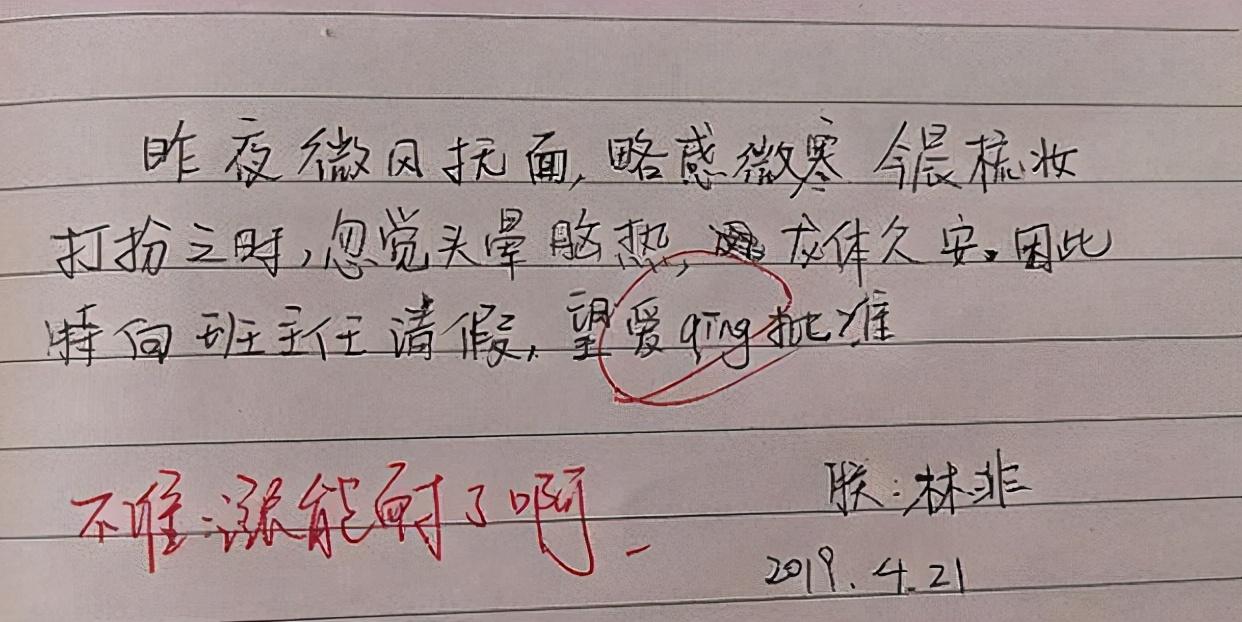 昨夜微风抚面,略感微寒 今晨梳妆
打扮之时,忽觉头晕脑热, 龙体久安。因此
特向班主任请假,望爱qīng批准
不准:涨能耐了啊
朕:林非
2019.4.21